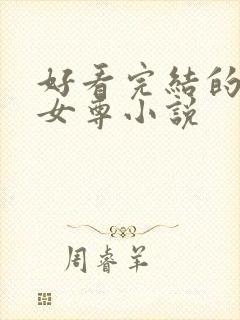 好看完結的
女尊小說
周睿羊